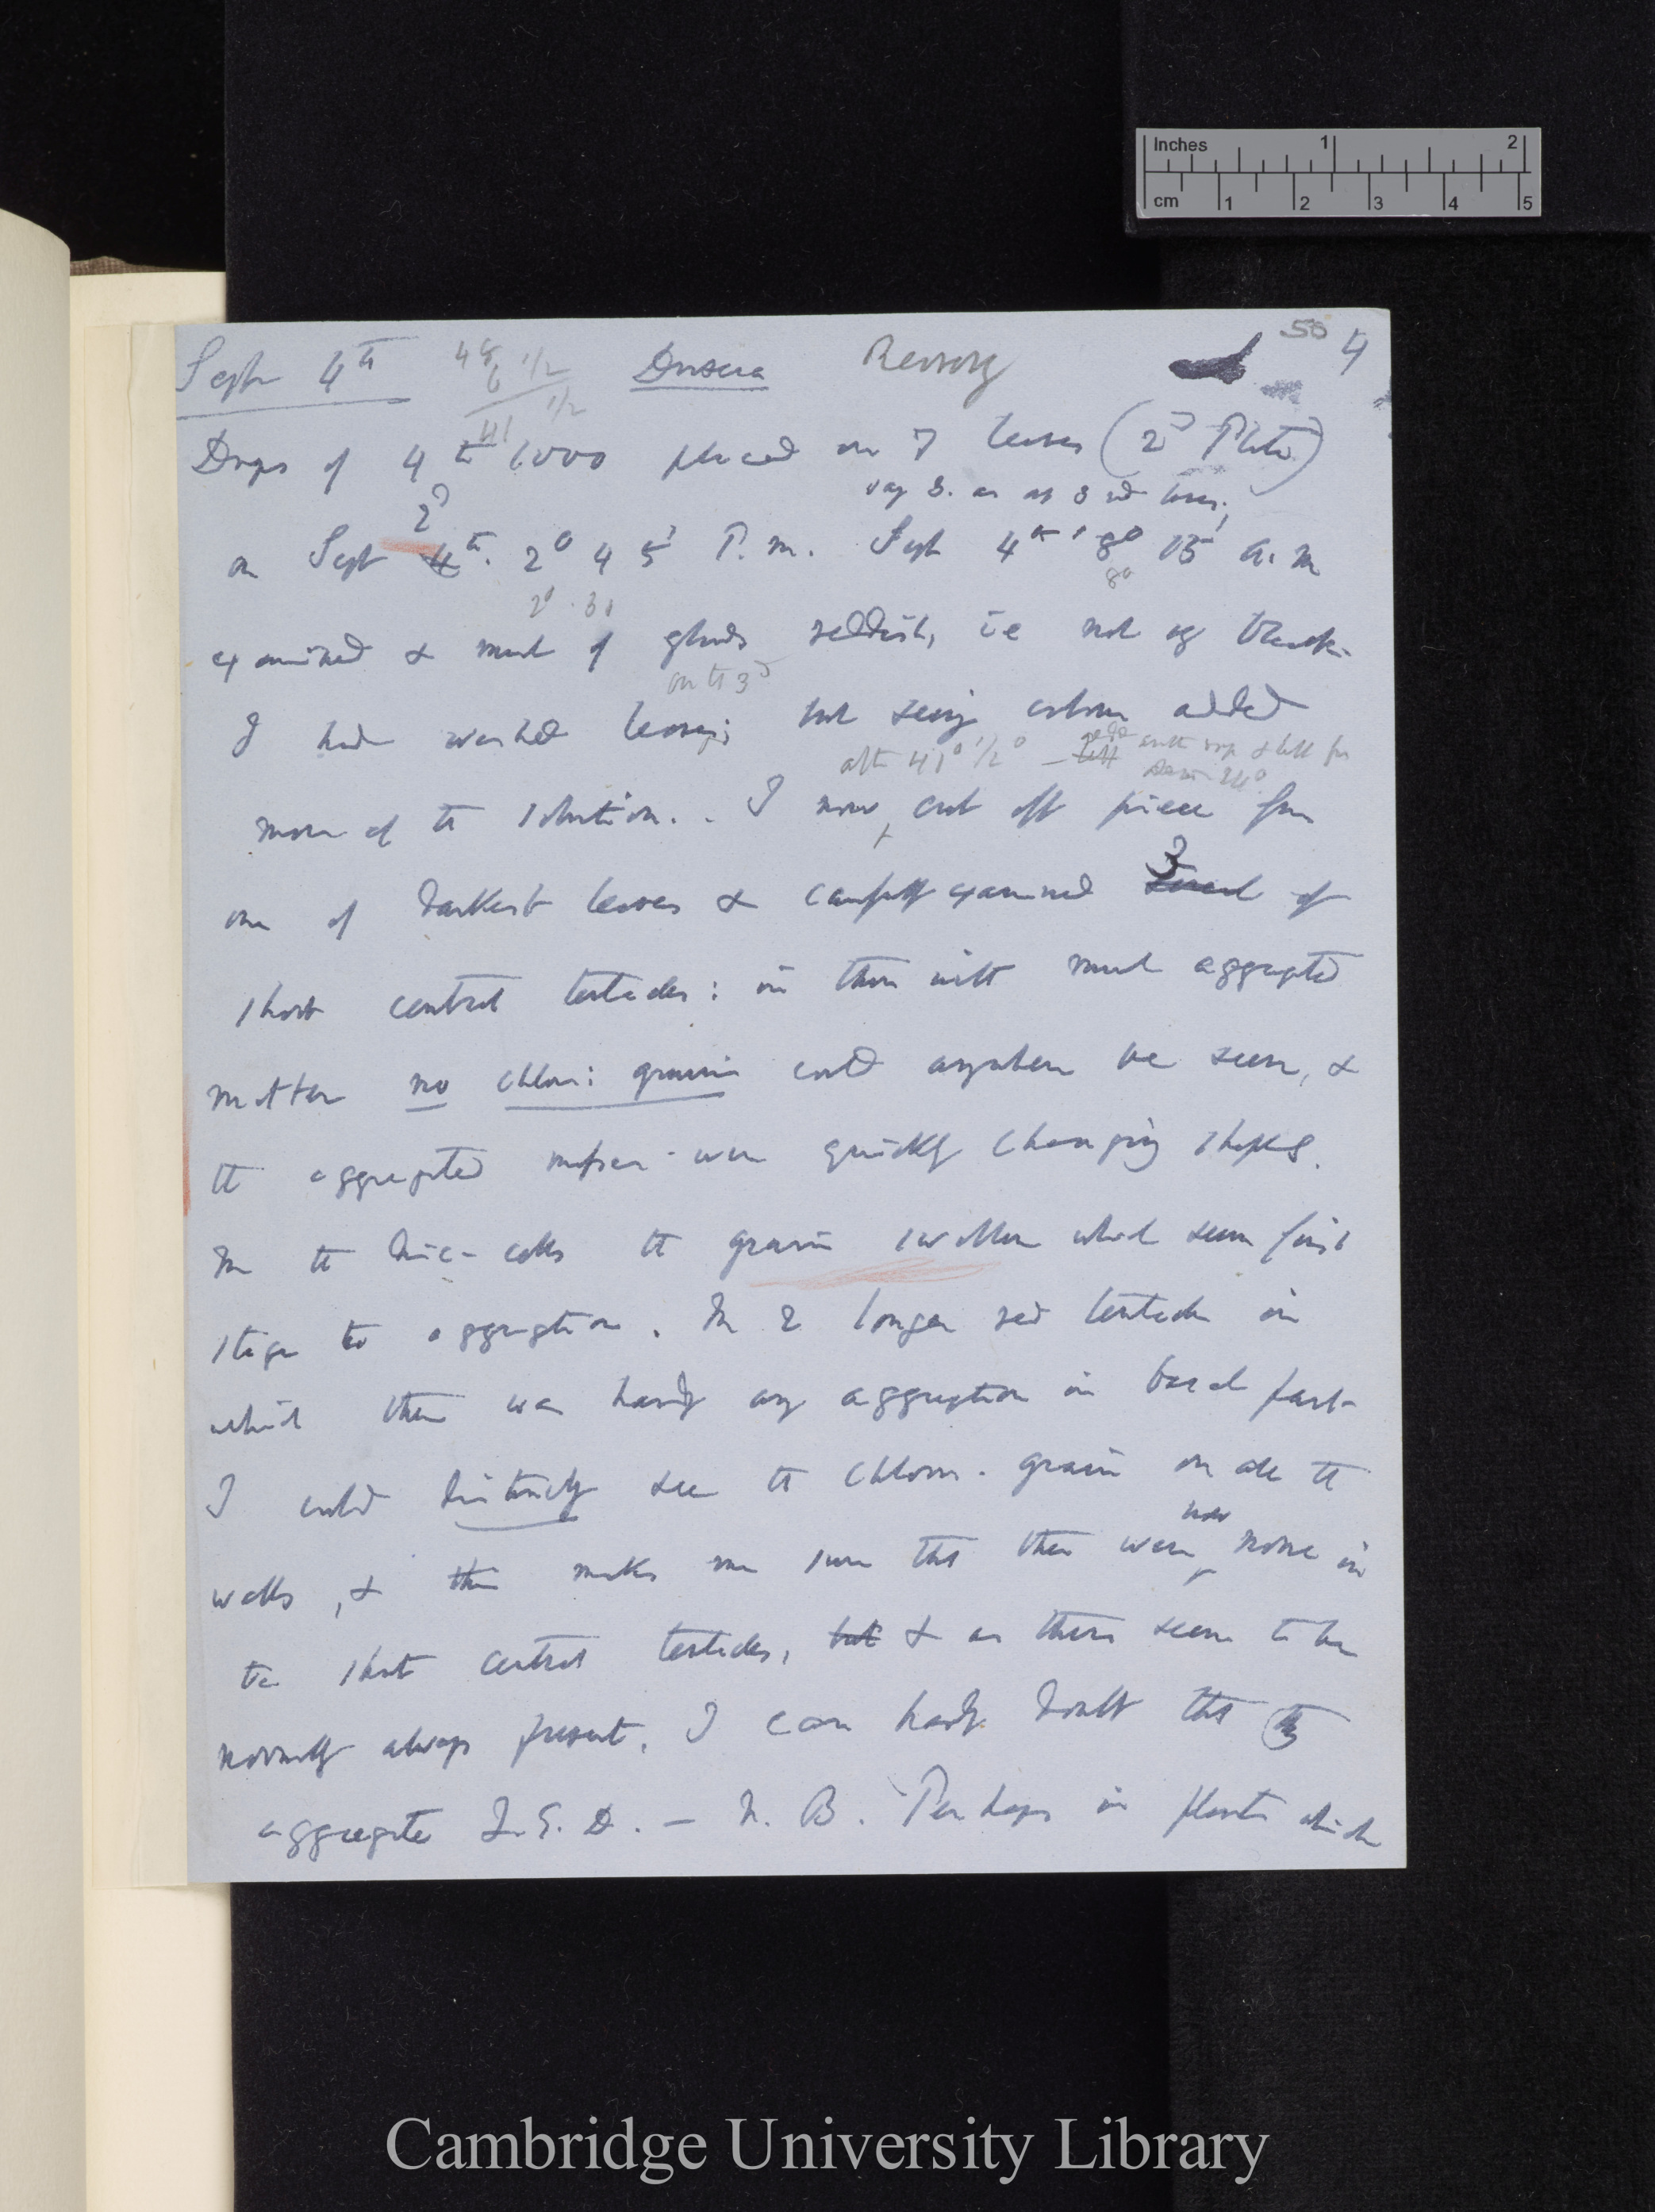 Inches 1 2
cm 1 2 3 4 5
50 4
Sept 4th 48 1/2 Drosera
6
41 1/2
Drops of 4 to 1000 placed on 7 leaves (2d Plate)
2d
on Sept 4th. 2° 45' P.m. Sept 4th 8° 15' a.m
2° 8°
examined & much of glands reddish, ie not of black.
on the 3d
I had washed leaves; but seeing colour added
after 41° 1/2 — left & left for 24°
more of the solution. . I now cut off piece from
3
one of darkest leaves & carefully examined several of
short central tentacles: in them with much aggregated
matter no chloro: grains could anywhere be seen, &
the aggregated masses were quickly changing shapes.
In the disc-cells the grains swollen which seem first
stage to aggregation. In 2 longer red tentacles in
which there was hardly any aggregation in basal part
I could distinctly see the chloro. grains on all the
now
walls, & this makes me sure that there were none in
the short central tentacles, but & as there seem to be
normally always present, I can hardly doubt that they
aggregate Q.E.D. — N.B. Perhaps in plants which
Cambridge University Library